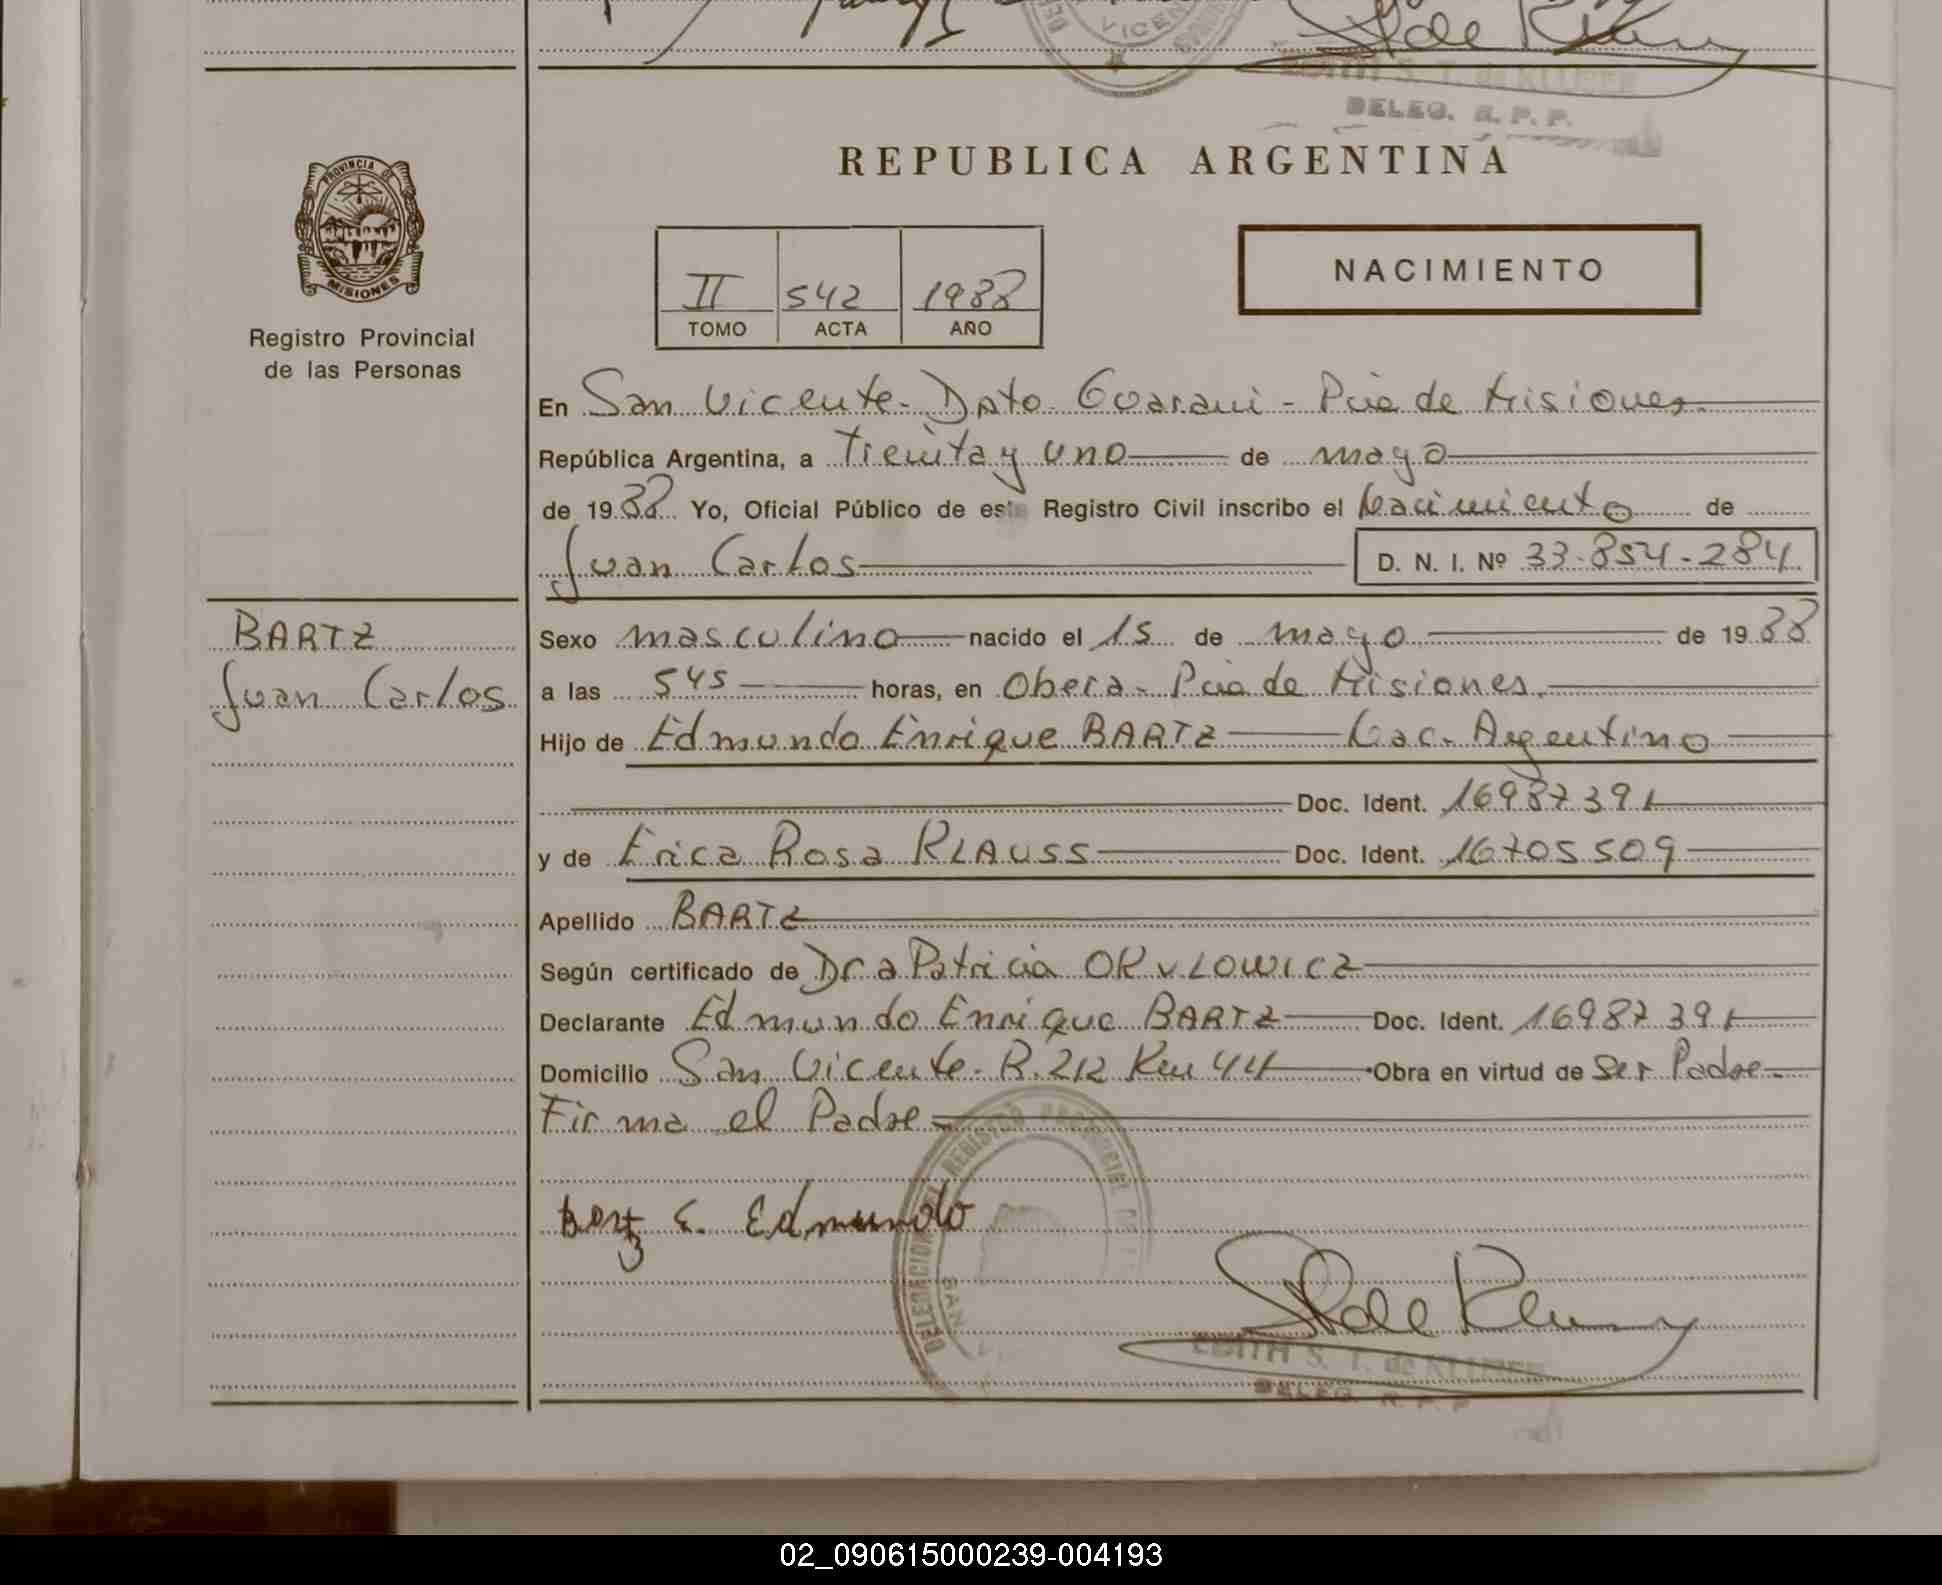 EDITH S. T. de KLUBER
DELEG. R. P. P.
PROVINCIA DE
MISIONES
Registro Provincial
de las Personas
REPUBLICA ARGENTINA
II 542 1988
TOMO ACTA AÑO
NACIMIENTO
En San Vicente - Dpto. Guarani - Pcia de Misiones.
República Argentina, a Treinta y uno de mayo
de 1988 Yo, Oficial Público de este Registro Civil inscribo el Nacimiento de
Juan Carlos D. N. I. Nº 33.854.284
BARTZ
Juan Carlos
Sexo masculino nacido el 15 de mayo de 1988
a las 545 horas, en Obera - Pcia de Misiones.
Hijo de Edmundo Enrique BARTZ Nac. Argentino
Doc. Ident. 16987391
y de Erica Rosa KLAUSS Doc. Ident. 16705509
Apellido BARTZ
Según certificado de Dra Patricia ORULOWICZ
Declarante Edmundo Enrique BARTZ Doc. Ident. 16987391
Domicilio San Vicente - R. 212 Km 44 Obra en virtud de ser Padre
Firma el Padre
E. Edmundo
DELEGACION REGISTRO PROVINCIAL
SAN
EDITH S. T. de KLUBER
DELEG. R. P. P.
02_090615000239-004193